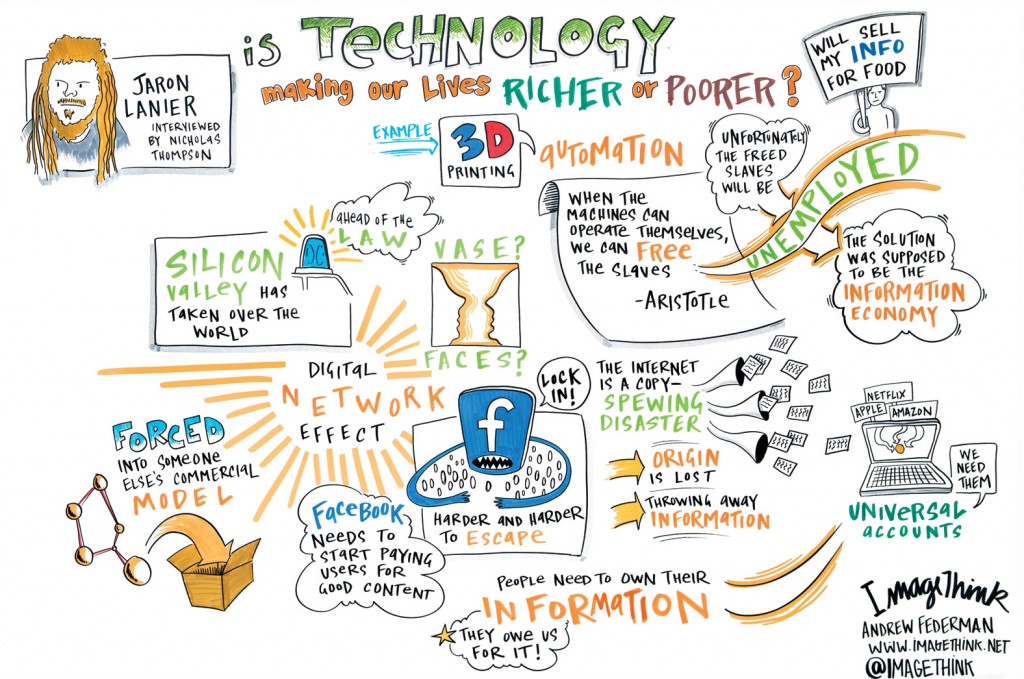 is TECHNOLOGY
making our Lives RICHER or POORER?
JARON
LANIER
INTERVIEWED
BY NICHOLAS
THOMPSON
WILL SELL
MY INFO
FOR FOOD
EXAMPLE
3D
PRINTING
AUTOMATION
UNFORTUNATELY
THE FREED
SLAVES
WILL BE
UNEMPLOYED
WHEN THE
MACHINES CAN
OPERATE THEMSELVES,
WE CAN FREE
THE SLAVES
-ARISTOTLE
THE SOLUTION
WAS SUPPOSED
TO BE THE
INFORMATION
ECONOMY
AHEAD OF THE
LAW
SILICON
VALLEY HAS
TAKEN OVER THE
WORLD
VASE?
FACES?
DIGITAL
NETWORK
EFFECT
FORCED
INTO SOMEONE
ELSE'S COMMERCIAL
MODEL
LOCK
IN!
f
HARDER AND HARDER
TO ESCAPE
FACEBOOK
NEEDS TO
START PAYING
USERS FOR
GOOD CONTENT
THE INTERNET
IS A COPY-
SPEWING
DISASTER
ORIGIN
IS LOST
THROWING AWAY
INFORMATION
NETFLIX
APPLE AMAZON
WE
NEED
THEM
UNIVERSAL
ACCOUNTS
PEOPLE NEED TO OWN THEIR
INFORMATION
THEY OWE US
FOR IT!
ImageThink
ANDREW FEDERMAN
WWW.IMAGETHINK.NET
@IMAGETHINK